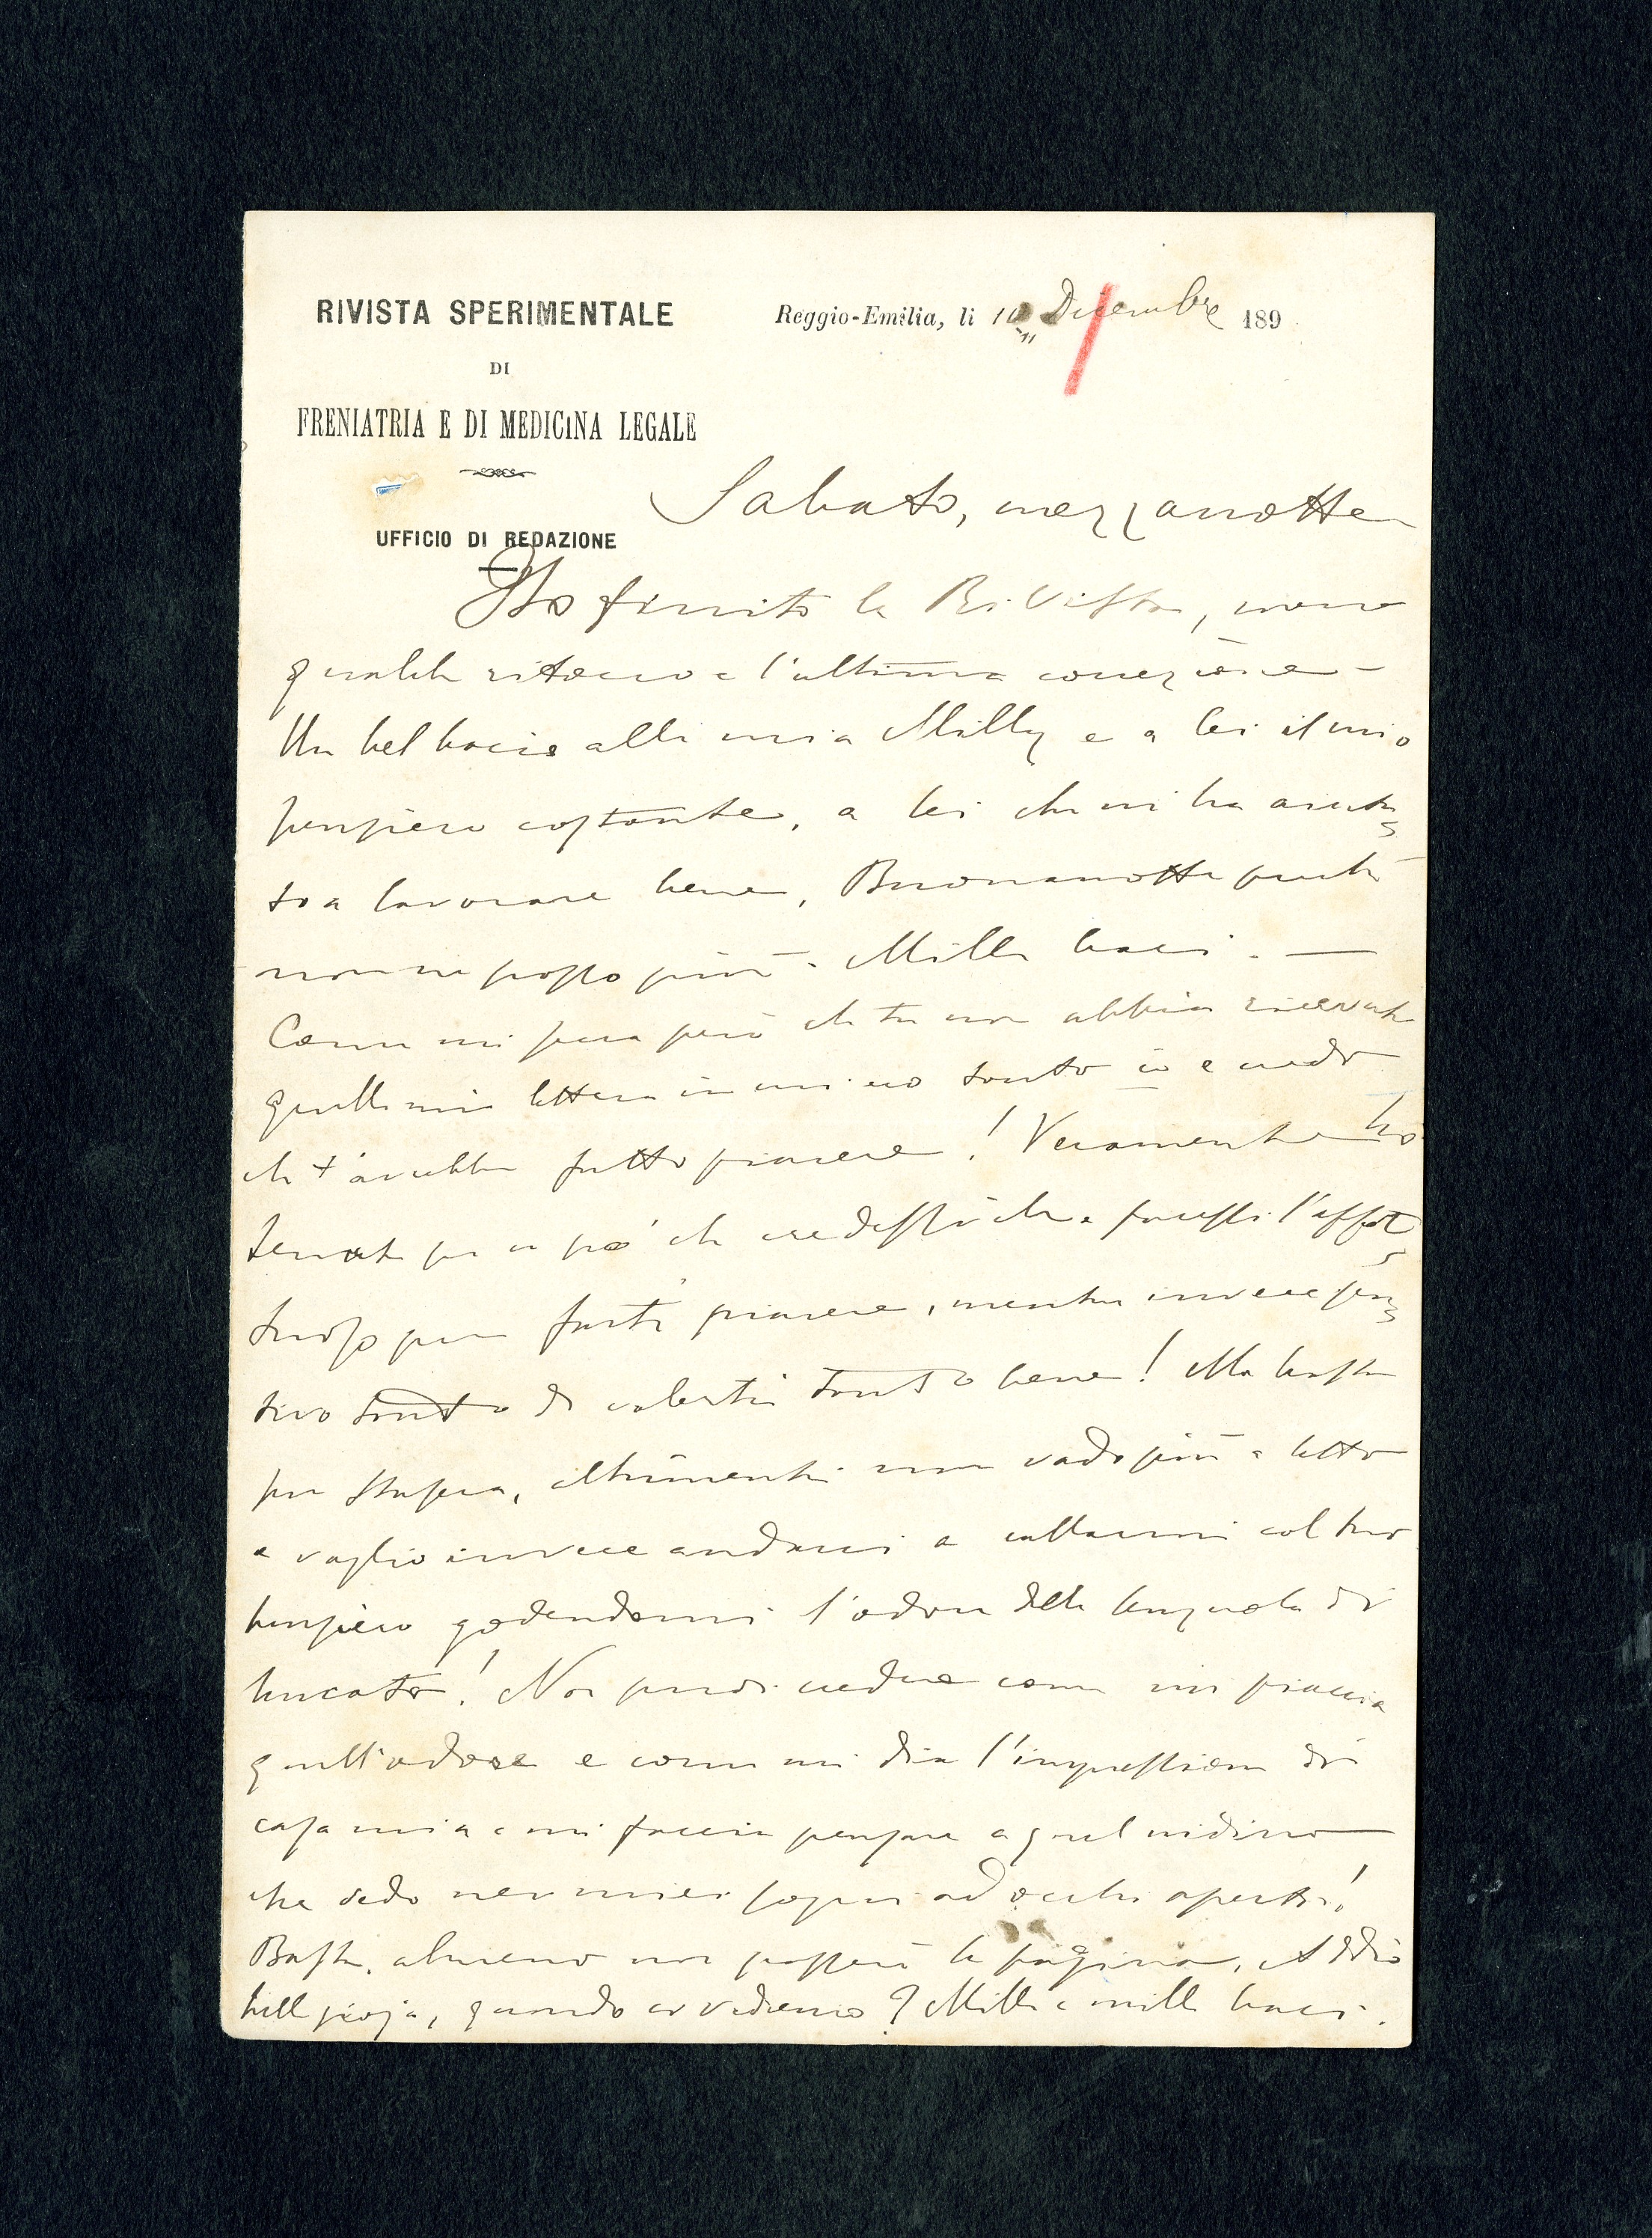 RIVISTA SPERIMENTALE
DI
FRENIATRIA E DI MEDICINA LEGALE
UFFICIO DI REDAZIONE
Reggio-Emilia, li 10 Dicembre 189
Sabato, mezzanotte
Ho finito la Rivista, meno
qualche ritocco e l'ultima correzione –
Un bel bacio alla mia Milly e a lei il mio
pensiero costante, a lei che mi ha aiuta=
to a lavorare bene. Buonanotte perché
non ne posso più. Mille baci. —
Come mi pesa però che tu non abbia ricevuto
quella mia lettera in cui ero tanto io e credo
che t'avrebbe fatto piacere! Veramente ho
temuto per un po' che credessi che facessi l'affet
tuoso per farti piacere, mentre invece sen=
tivo tanto di volerti tanto bene! Ma basta
per stasera, altrimenti non vado più a letto
e voglio invece andarci a cullarmi col tuo
pensiero godendomi l'odore delle lenzuola di
bucato! Non puoi credere come mi piaccia
quell'odore e come mi dia l'impressione di
casa mia e mi faccia pensare a quel nidino
che vedo nei miei sogni ad occhi aperti!
Basta, almeno non passerò la pagina. Addio
bella gioja, quando ci vedremo? Mille e mille baci.